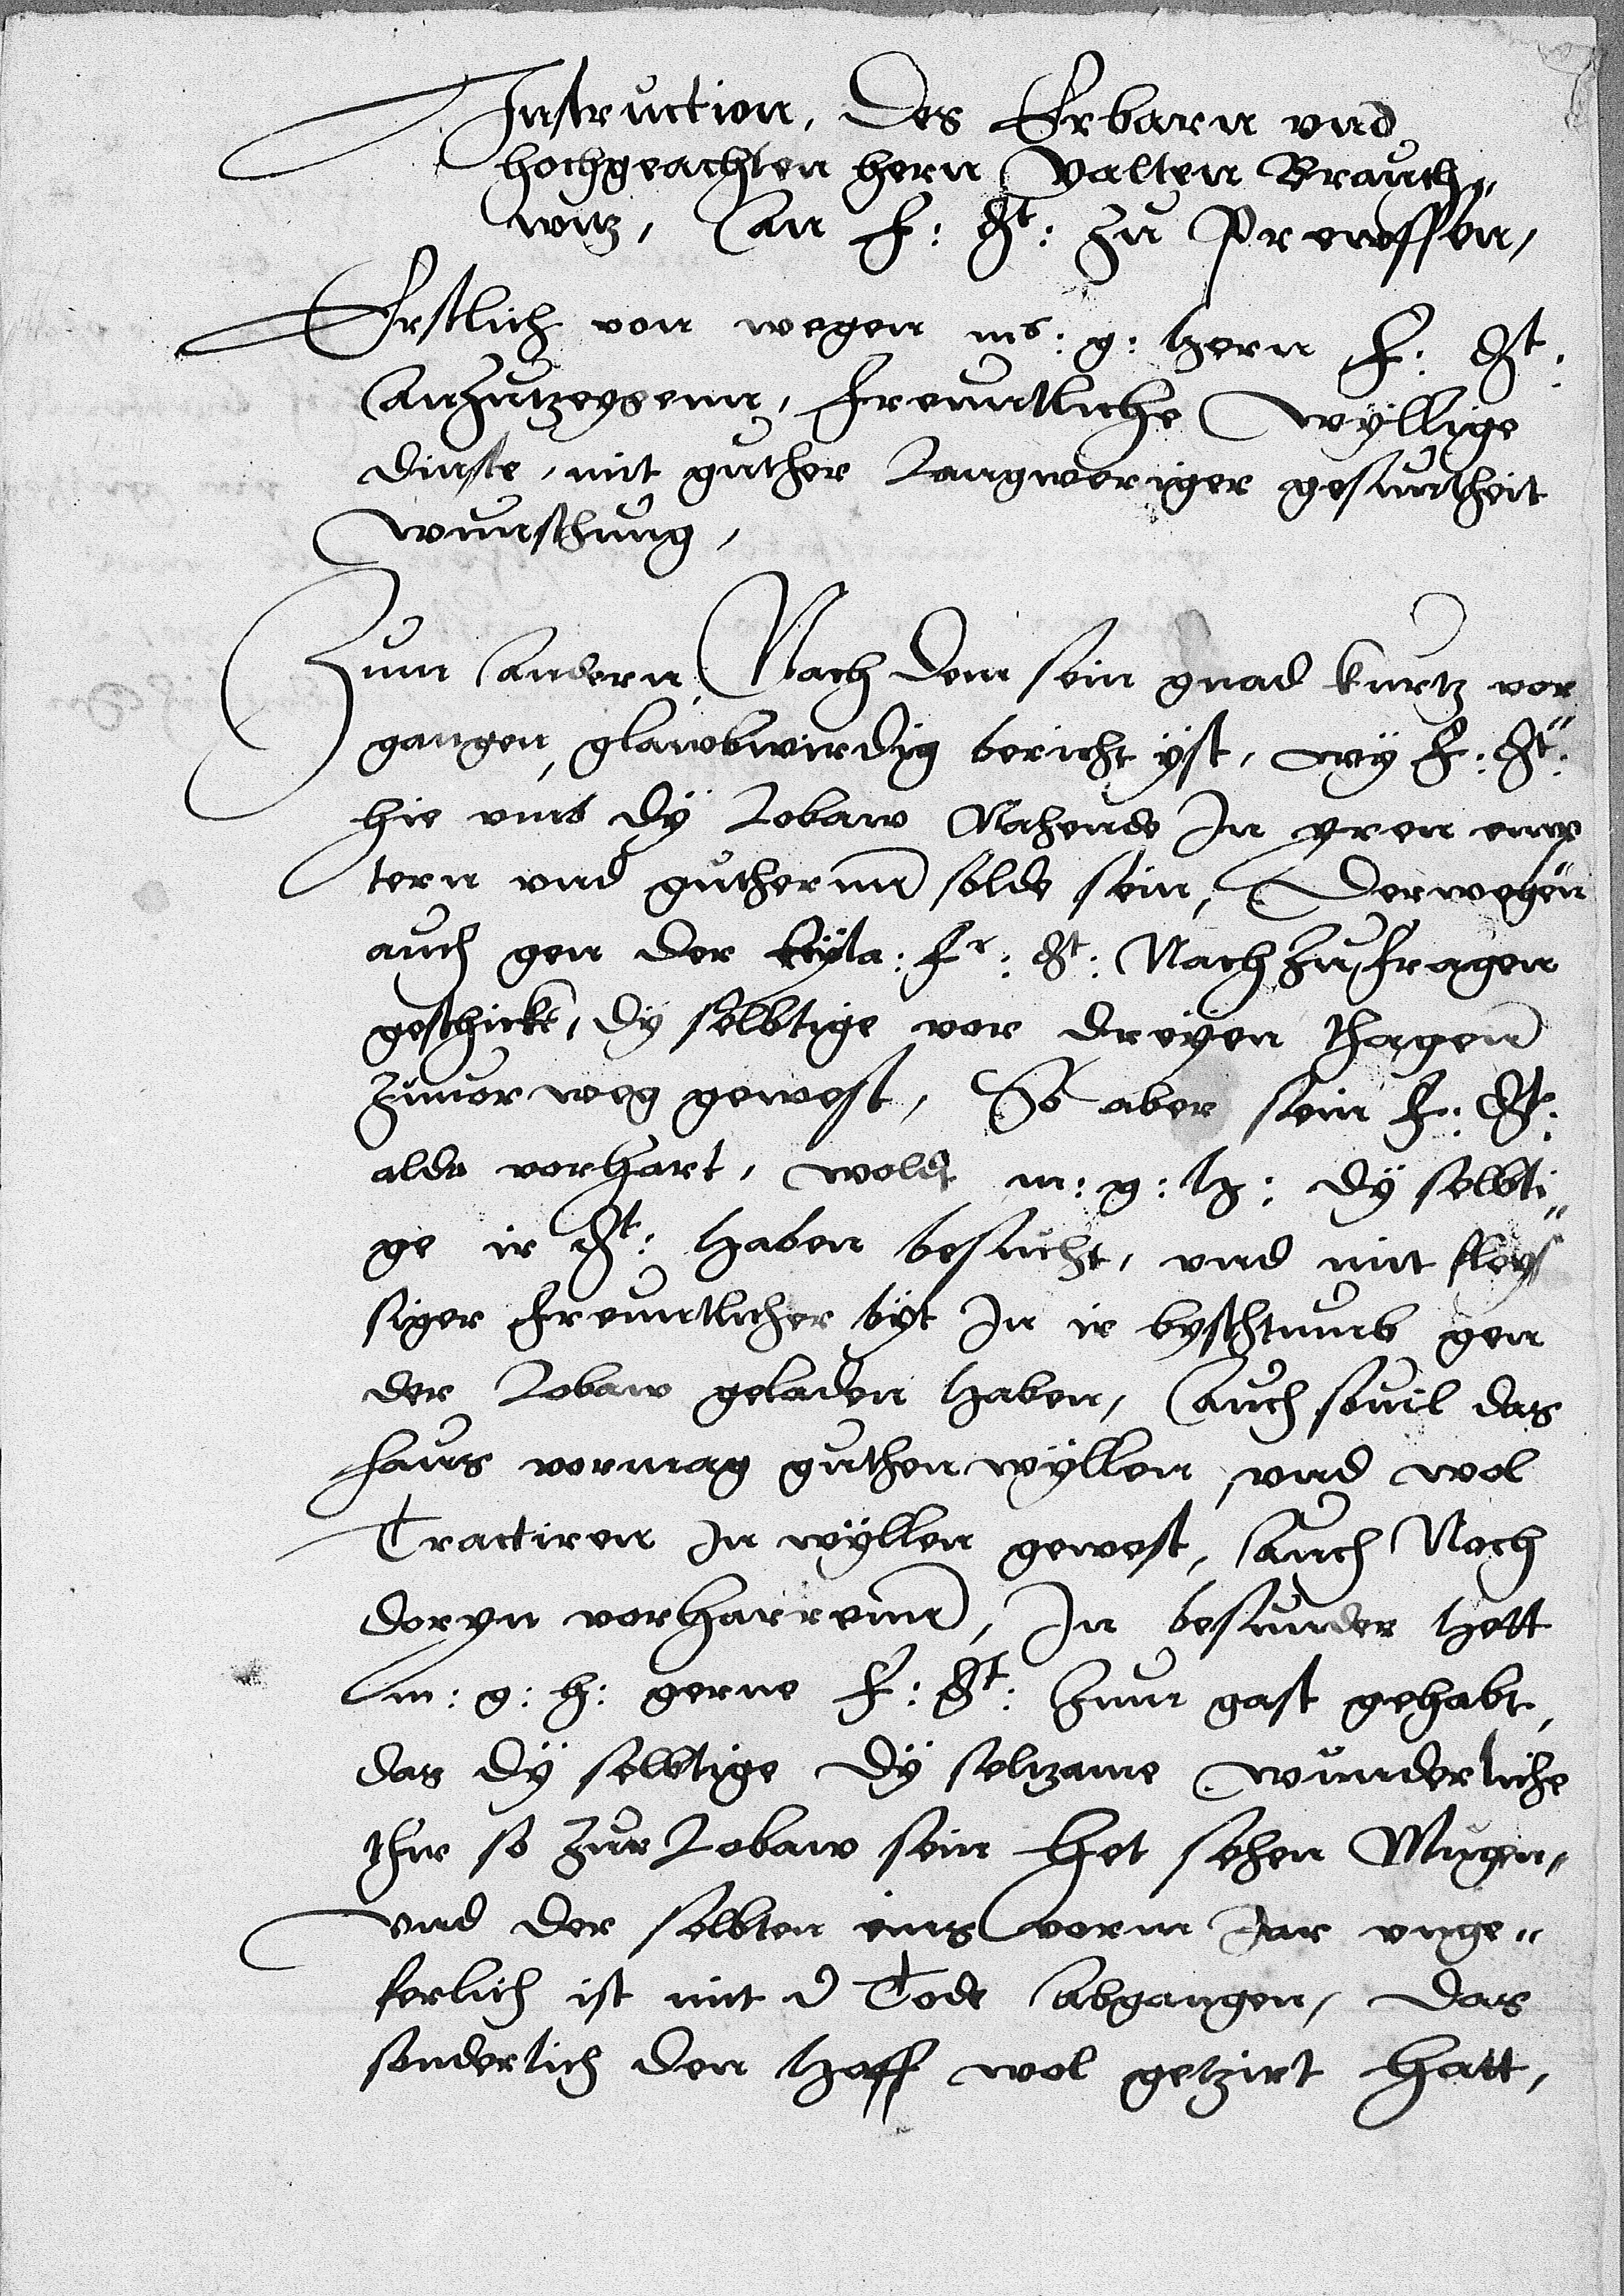 Instruction, des Erbarn vnd
hochgeachten hern Valten Brauch„
witz, an f: dt: zu Prewssen,
Erstlich von wegen ms: g: hern f: dt:
anzutzeygenn, freuntliche wyllige
dinste, mit guther langweriger gesuntheit
wunschung,
Zum andern, Nach dem sein gnad kurtz vor„
gangen, glawbwirdig bericht ÿst, wy f: dt:
hie vmb dÿ Lobaw Nahende In yren emp
tern vnd guthernn solde sein, Derwegen
auch gen der Eÿla: fr: dt: Nach zu fragen
geschickt, dÿ selbtige vor dreÿen thagenn
zuuor weg gewest, So aber sein f: dt:
aldo vorhart, wolt m: g: h: dÿ selbti„
ge ir dt: haben besucht, vnd mit fleys
siger freuntlicher bÿt In ir byschtumb gen
der Lobaw geladen haben, auch souil das
haus vormag guthen wÿllen, vnd wol
Tractiren In wÿllen gewest, auch Noch
doryn vorharrenn, In besunder hett
m: g: h: gerne f: dt: zum gast gehabt,
das dÿ selbtige dÿ seltzame wunderliche
thir so zur Lobaw sein het sehen Mugen,
vnd der selbten eins vorm Jar vnge„
ferlich ist mit d Tode abgangen, das
sonderlich den hoff wol getzirt hatt,